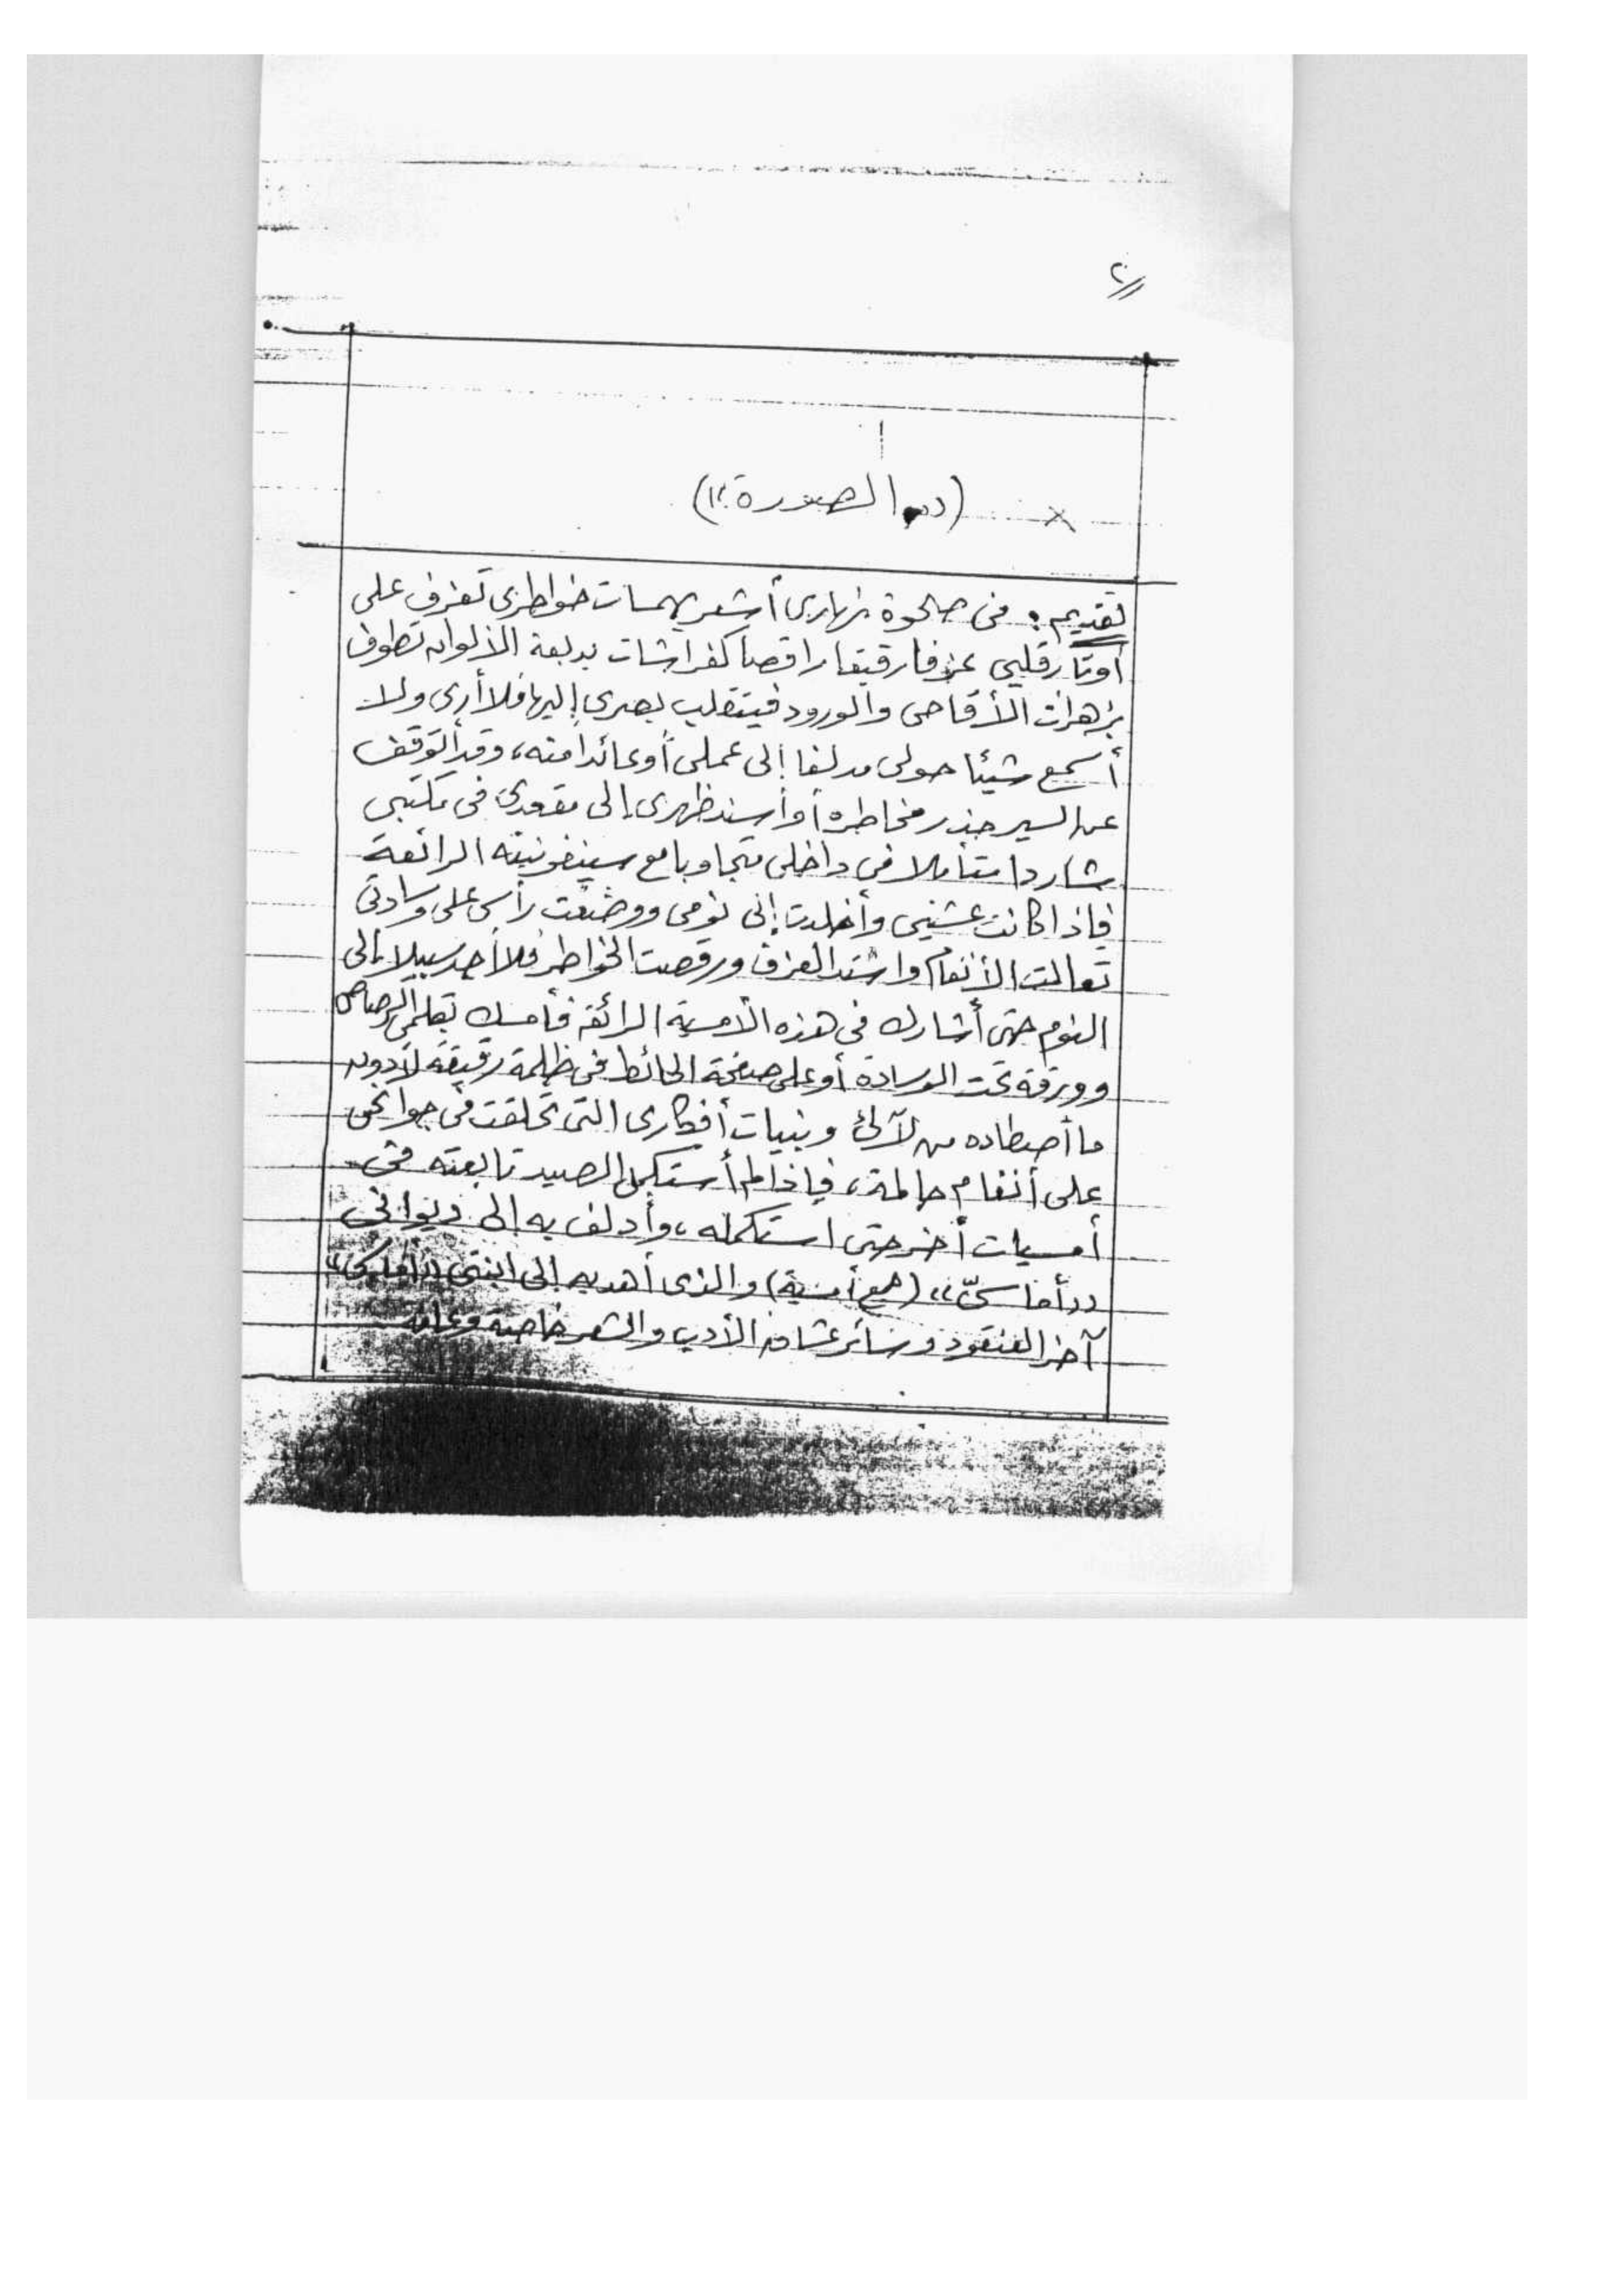 ٢
(دم الصورة ١٢)
تقديم: فى صحوة نهارى أشعر بهمسات خواطرى تعزف على
أوتار قلبى عزفا رقيقا راقصا كفراشات بديعة الألوان تطوف
بزهرات الأقاحى والورود فيتقلب بصرى إليها فلا أرى ولا
أسمع شيئا حولى مدلفا إلى عملى أو عائدا منه، وقد أتوقف
عن السير حذر مخاطره أو أسند ظهرى إلى مقعدى فى مكتبى
شاردا متأملا فى داخلى متجاوبا مع سيفونيته الرائعة
فإذا كانت عشيتى وأخلدت إلى نومى ووضعت رأسى على وسادتى
تعالت الأنغام واشتد العزف ورقصت الخواطر فلا أجد سبيلا إلى
النوم حتى أشارك فى هذه الأمسية الرائقة فأمسك بقلمى الرصاص
وورقة تحت الوسادة أو على صفحة الحائط فى ظلمة رقيقة لأدون
ما أصطاده من لآلئ وبنيات أفكارى التى تخلقت فى جوانحى
على أنغام حالمة، فإذا لم أستكمل الصيد تابعته فى
أمسيات أخر حتى استكمله، وأدلف به إلى ديوانى
"أماسىّ" (جمع أمسية) والذى أهديه إلى ابنتى
آخر العنقود وسائر عشاق الأدب والشعر خاصة وعامة